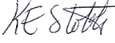 K E Stotts